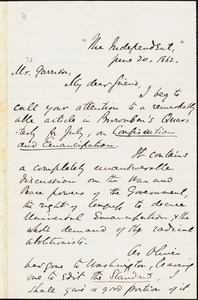 "The Independent,"
June 20, 1862.
Mr. Garrison,
My dear friend,
I beg to
call your attention to a remarkably
able article in Brownson's Quar-
terly for July, on Confiscation
and Emancipation.
It contains
a completely unanswerable
discussion on the War and
Peace powers of the Government,
the right of Congress to decree
Universal Emancipation, & the
whole demand of the radical
abolitionists.
As Oliver
has gone to Washington, leaving
me to edit the Standard, I
shall give a good portion of it